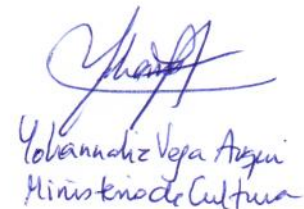 Yohannaliz Vega Auqui
Ministerio de Cultura